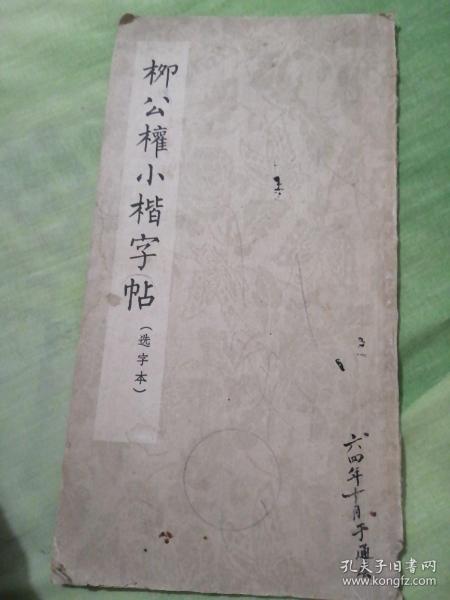 柳公權小楷字帖
（选字本）
六四年十月于通
孔夫子旧书网
www.kongfz.com